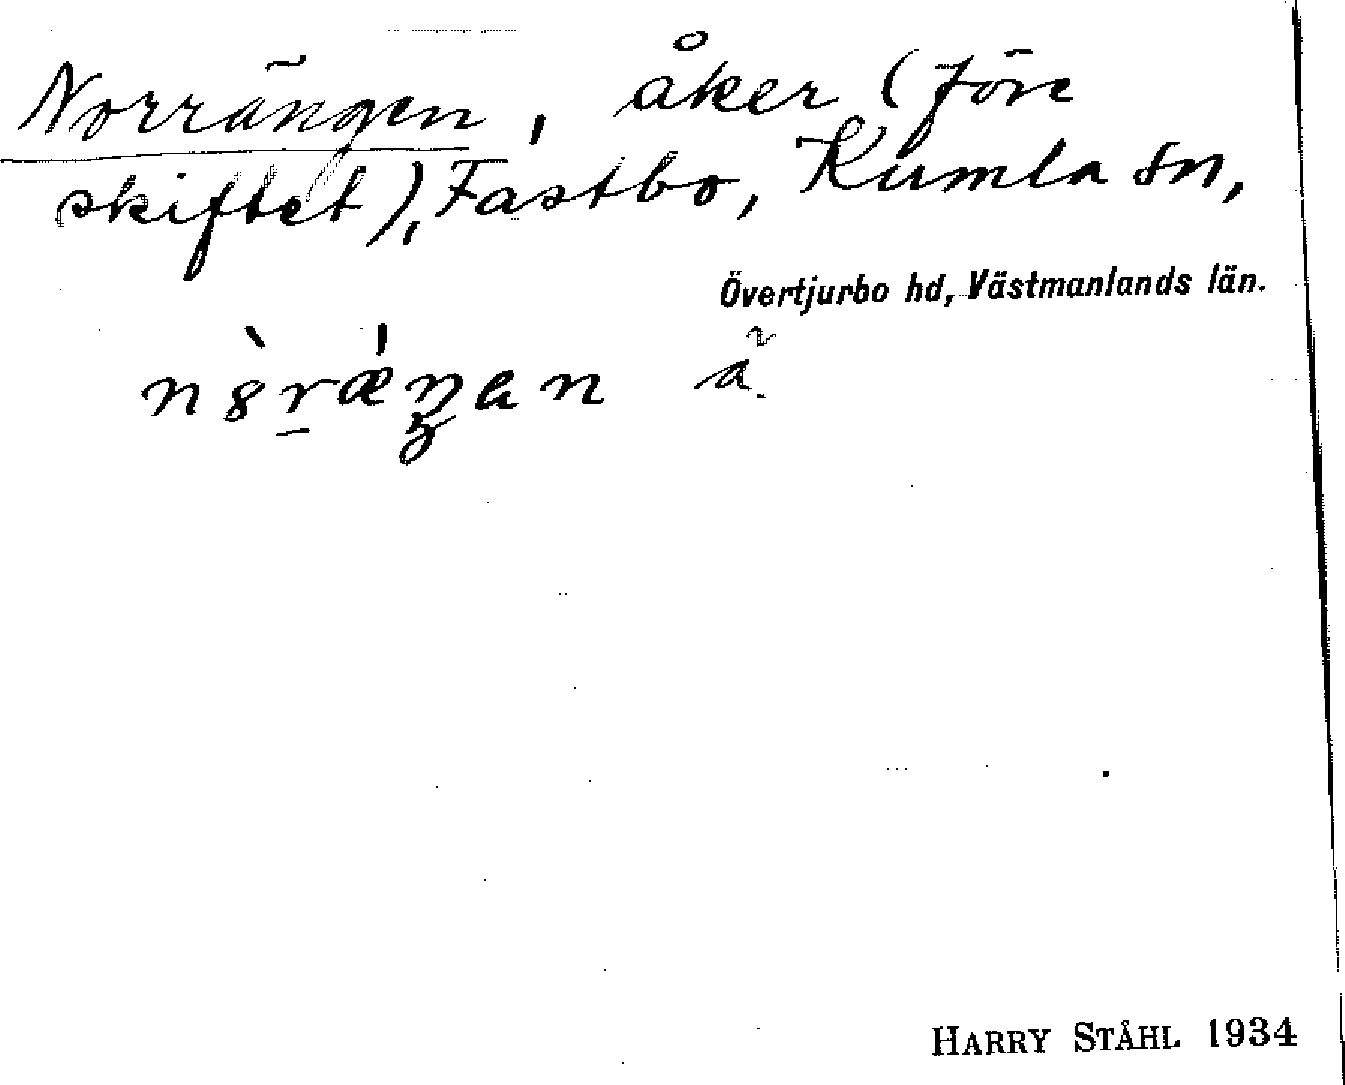 Norrängen, åker (före
skiftet), Fastbo, Kumla sn,
Övertjurbo hd, Västmanlands län.
HARRY STÅHL 1934